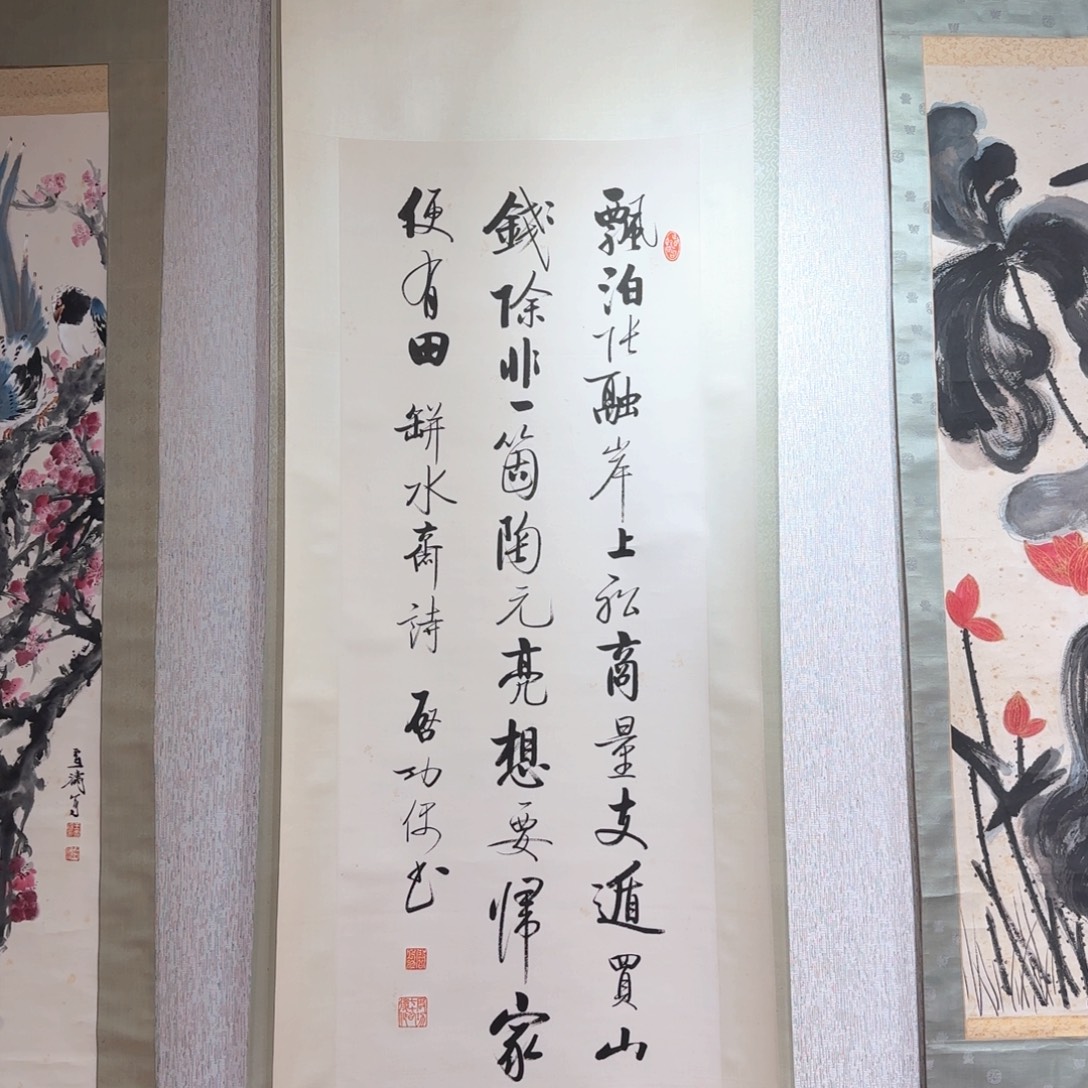 飄泊張融岸上船商量支遁買山
錢除非一箇陶元亮想要歸家
便有田 缾水齋詩 啓功偶書